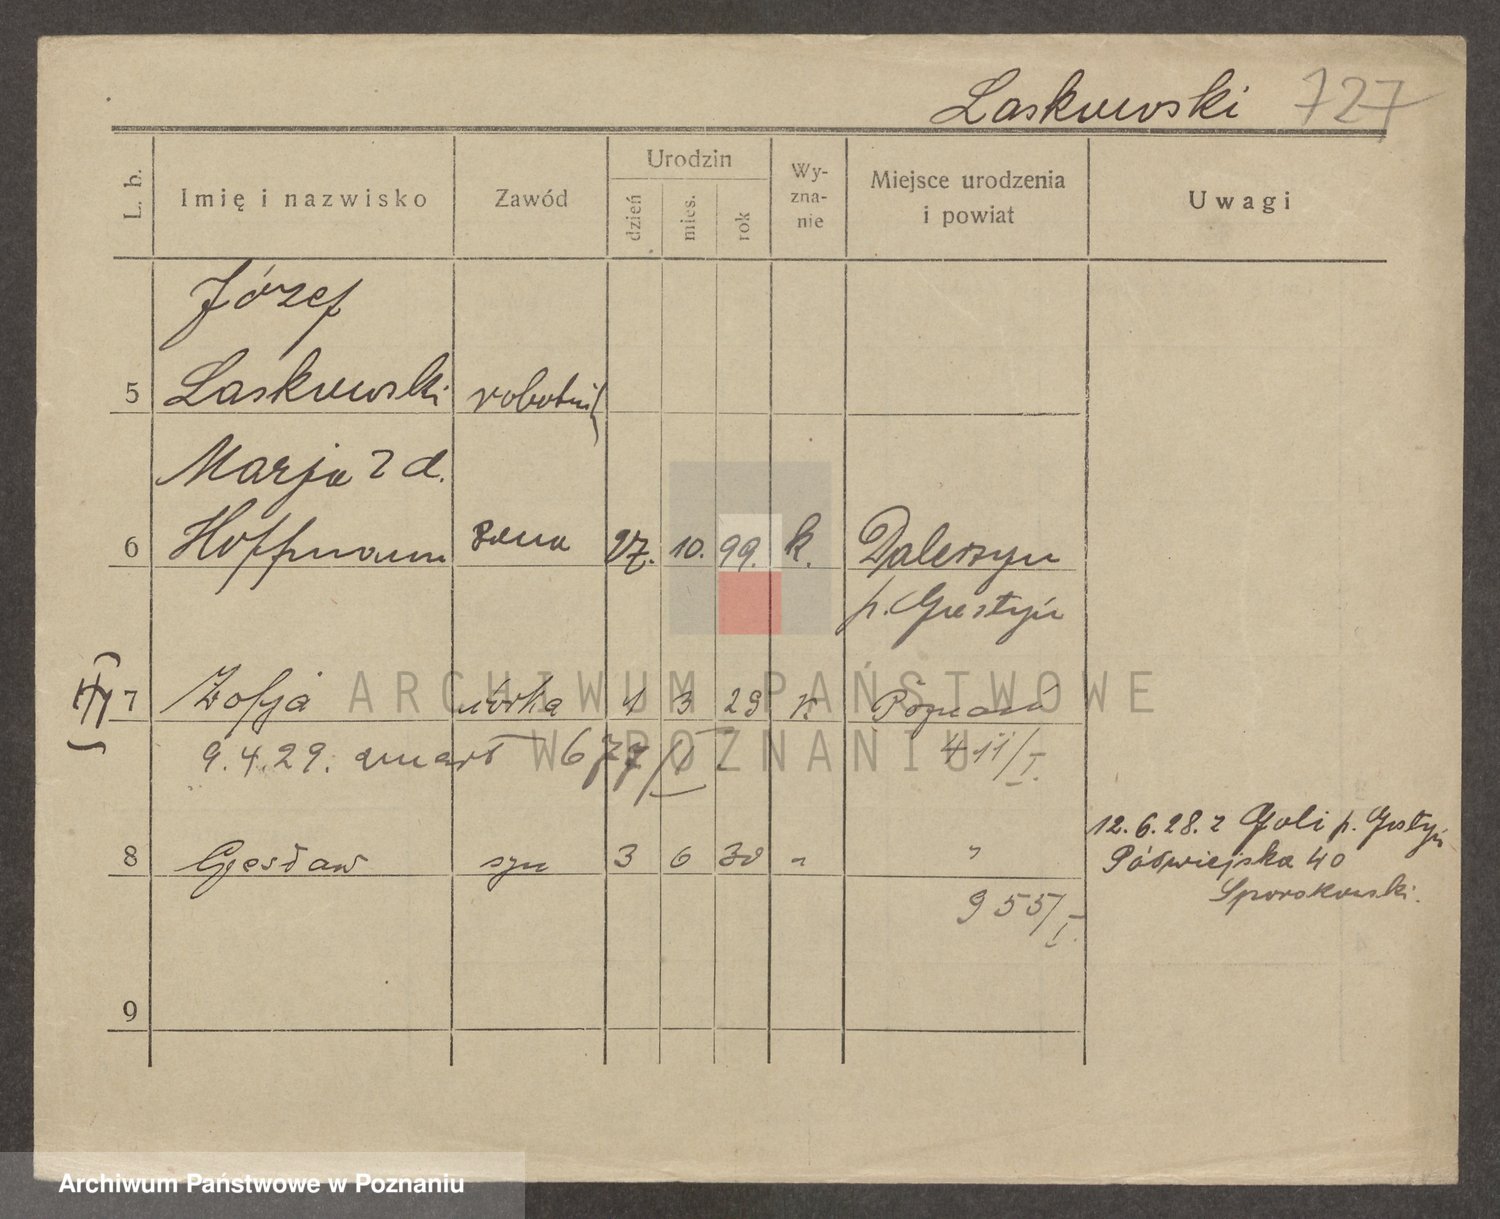 Laskowski 727
L. b.
Imię i nazwisko
Zawód
Urodzin
dzień
mies.
rok
Wy-
zna-
nie
Miejsce urodzenia
i powiat
Uwagi
Józef
5 Laskowski robotnik
Marja z d.
6 Hoffmann żona 27. 10. 99. k. Dalerzyn
p. Gostyń
7 Zofja córka 1 3 29 k Poznań
9.4.29. umarł 677/I 411/I.
12.6.28. z Goli p. Gostyń
8 Czesław syn 3 6 30 " "
Półwiejska 40
Sporakowski.
955/I.
9
ARCHIWUM PAŃSTWOWE
W POZNANIU
Archiwum Państwowe w Poznaniu